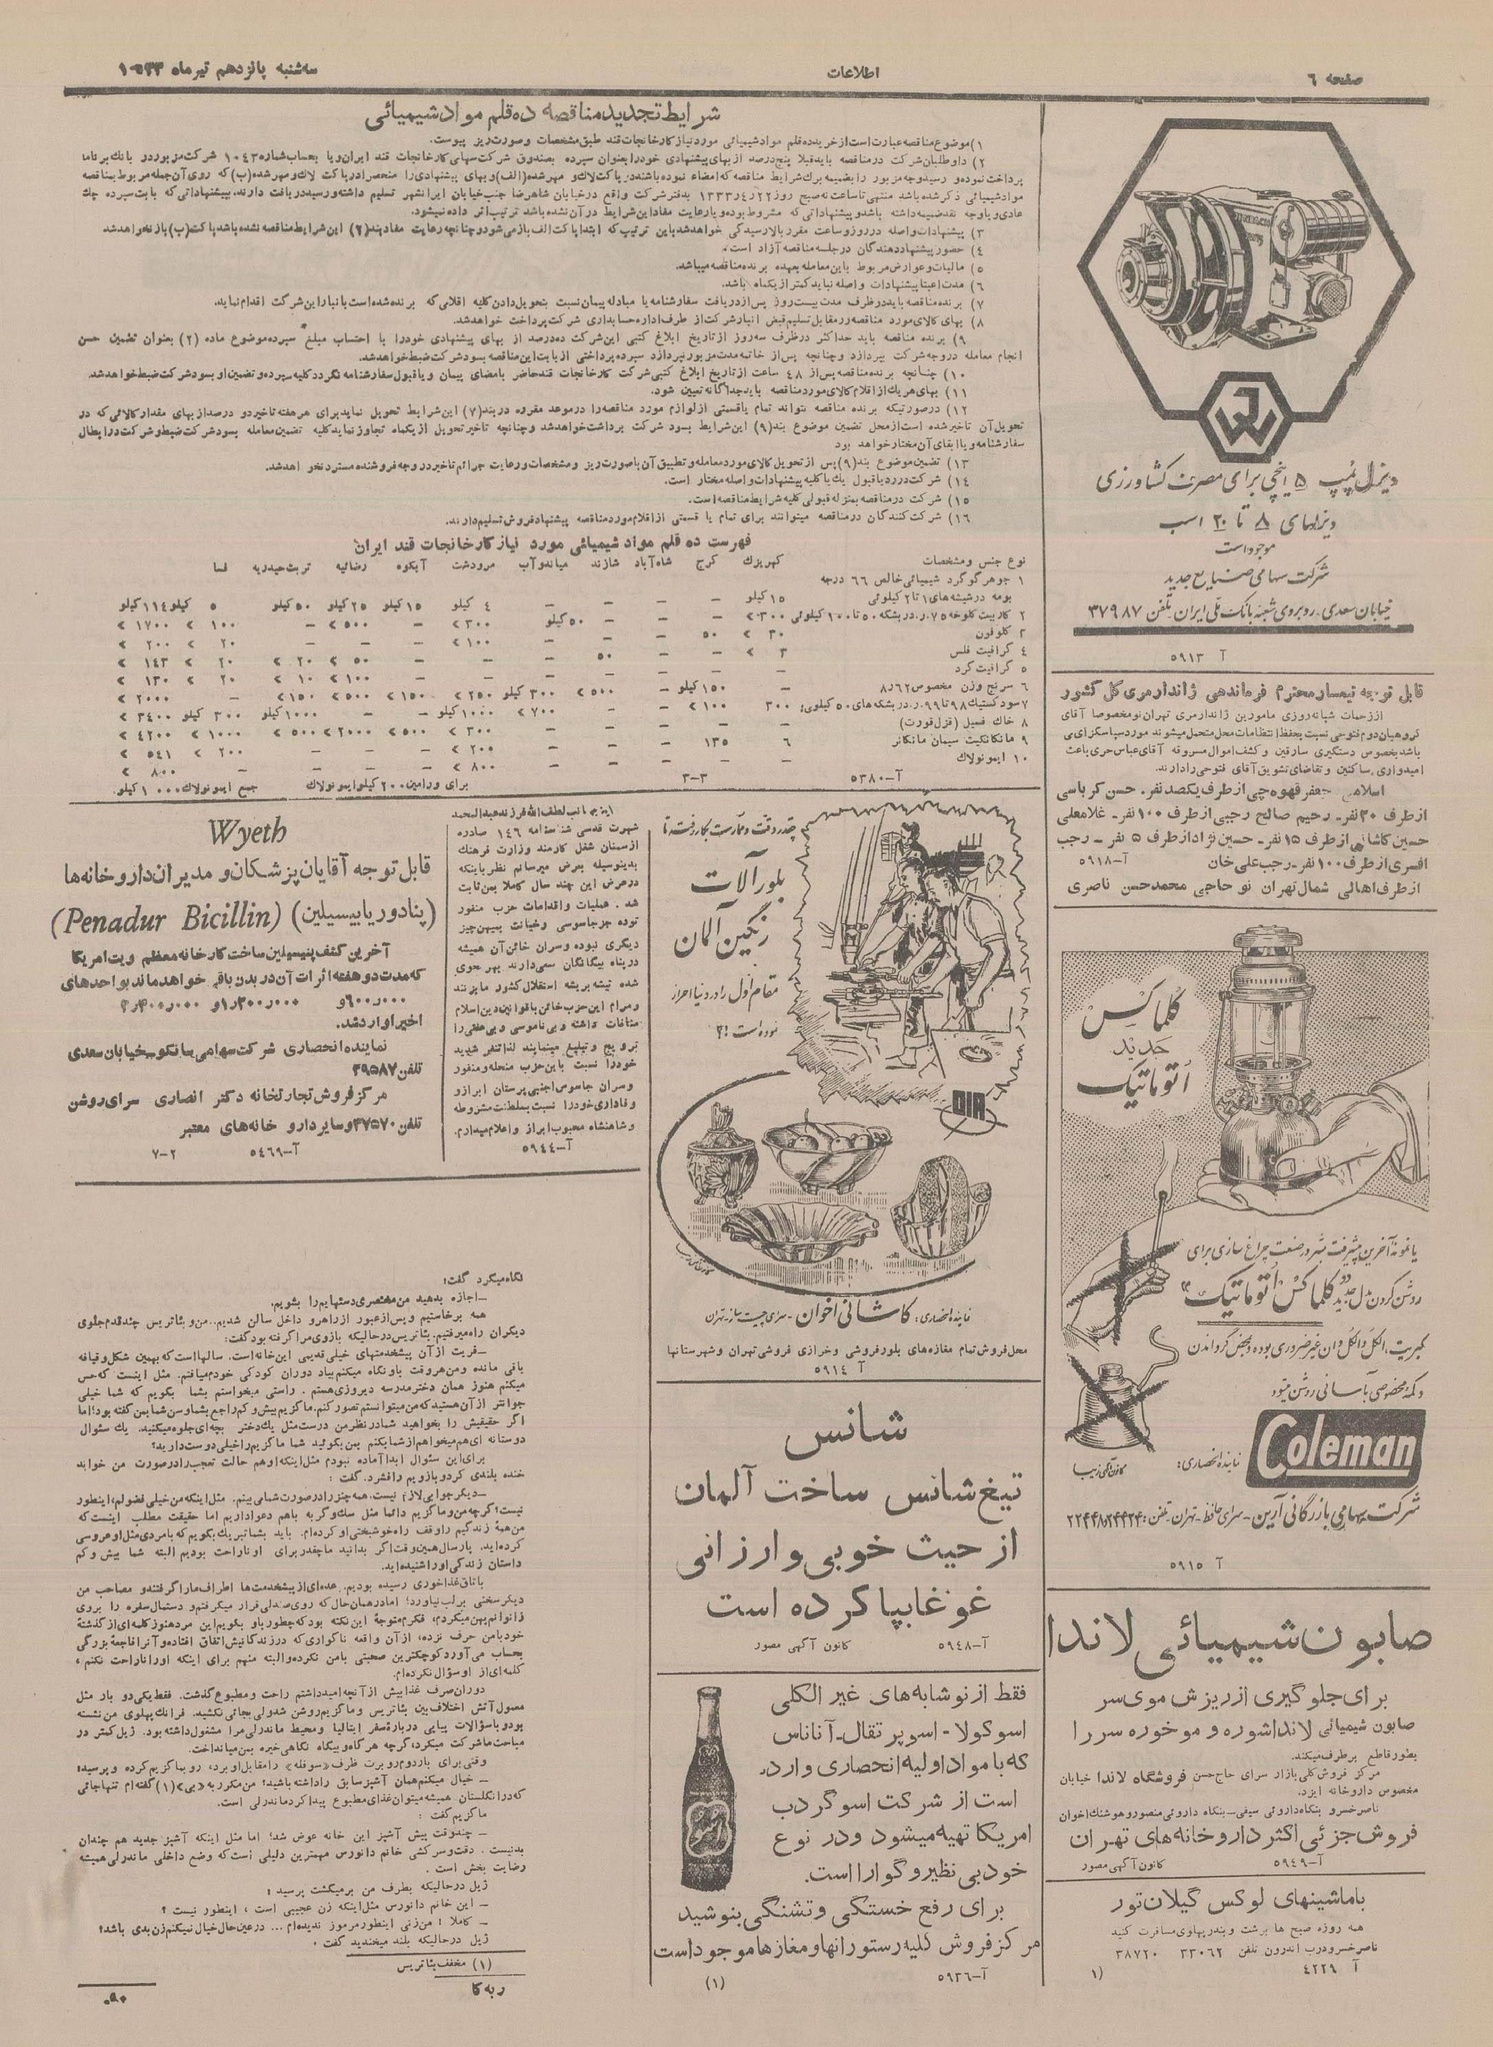 صفحه ٦
اطلاعات
سه‌شنبه پانزدهم تیرماه ۱۳۳۳
شرایط تجدید مناقصه ده قلم مواد شیمیائی
۱) موضوع مناقصه عبارت است از خرید ده قلم مواد شیمیائی مورد نیاز کارخانجات قند طبق مشخصات و صورت ریز پیوست.
۲) داوطلبان شرکت در مناقصه باید قبلا پنج درصد از بهای پیشنهادی خود را بعنوان سپرده بصندوق شرکت سهامی کارخانجات قند ایران و یا بحساب شماره ۱۰٤۳ شرکت مزبور در بانک برناما
پرداخت نموده و رسید وجه مزبور را بضمیمه برک شرایط مناقصه که امضاء نموده باشند در پاکت لاک و مهر شده (الف) و بهای پیشنهادی را منحصرا در پاکت لاک و مهر شده (ب) که روی آن جمله مربوط بمناقصه
مواد شیمیائی ذکر شده باشد منتهی تا ساعت نه صبح روز ۲۲ر٤ر۱۳۳۳ بدفتر شرکت واقع در خیابان شاهرضا جنب خیابان ایرانشهر تسلیم داشته و رسید دریافت دارند. بپیشنهاداتی که بابت سپرده چک
عادی و یا وجه نقد ضمیمه داشته باشد و پیشنهاداتی که مشروط بوده و یا رعایت مفاد این شرایط در آن نشده باشد ترتیب اثر داده نمیشود.
۳) پیشنهادات واصله در روز و ساعت مقرر بالا رسیدگی خواهد شد باین ترتیب که ابتدا پاکت الف باز می‌شود و چنانچه رعایت مفاد بند (۲) این شرایط مناقصه نشده باشد پاکت (ب) باز نخواهد شد
٤) حضور پیشنهاد دهندگان در جلسه مناقصه آزاد است.
٥) مالیات و عوارض مربوط باین معامله بعهده برنده مناقصه میباشد.
٦) مدت اعتبار پیشنهادات واصله نباید کمتر از یکماه باشد.
۷) برنده مناقصه باید در ظرف مدت بیست روز پس از دریافت سفارشنامه یا مبادله پیمان نسبت بتحویل دادن کلیه اقلامی که برنده شده است بانبار این شرکت اقدام نماید.
۸) بهای کالای مورد مناقصه در مقابل تسلیم قبض انبار شرکت از طرف اداره حسابداری شرکت پرداخت خواهد شد.
۹) برنده مناقصه باید حداکثر در ظرف سه روز از تاریخ ابلاغ کتبی این شرکت ده درصد از بهای پیشنهادی خود را با احتساب مبلغ سپرده موضوع ماده (۲) بعنوان تضمین حسن
انجام معامله در وجه شرکت بپردازد و چنانچه پس از خاتمه مدت مزبور نپردازد سپرده پرداختی از بابت این مناقصه بسود شرکت ضبط خواهد شد.
۱۰) چنانچه برنده مناقصه پس از ٤۸ ساعت از تاریخ ابلاغ کتبی شرکت کارخانجات قند حاضر بامضای پیمان و یا قبول سفارشنامه نگردد کلیه سپرده و تضمین او بسود شرکت ضبط خواهد شد.
۱۱) بهای هر یک از اقلام کالای مورد مناقصه باید جداگانه تعیین شود.
۱۲) در صورتیکه برنده مناقصه نتواند تمام یا قسمتی از لوازم مورد مناقصه را در موعد مقرره در بند (۷) این شرایط تحویل نماید برای هر هفته تاخیر دو درصد از بهای مقدار کالائی که در
تحویل آن تاخیر شده است از محل تضمین موضوع بند (۹) این شرایط بسود شرکت برداشت خواهد شد و چنانچه تاخیر تحویل از یکماه تجاوز نماید کلیه تضمین معامله بسود شرکت ضبط و شرکت در ابطال
سفارشنامه و یا ابقای آن مختار خواهد بود
۱۳) تضمین موضوع بند (۹) پس از تحویل کالای مورد معامله و تطبیق آن با صورت ریز و مشخصات و رعایت جرائم تاخیر در وجه فروشنده مسترد خواهد شد.
۱٤) شرکت در رد یا قبول یک یا کلیه پیشنهادات واصله مختار است.
۱٥) شرکت در مناقصه بمنزله قبولی کلیه شرایط مناقصه است.
۱٦) شرکت کنندگان در مناقصه میتوانند برای تمام یا قسمتی از اقلام مورد مناقصه پیشنهاد فروش تسلیم دارند.
فهرست ده قلم مواد شیمیائی مورد نیاز کارخانجات قند ایران
نوع جنس و مشخصات کهریزک کرج شاه‌آباد شازند میاندوآب مرودشت آبکوه رضائیه تربت‌حیدریه فسا
۱ جوهر گوگرد شیمیائی خالص ٦٦ درجه
بومه در شیشه‌های ۱ تا ۲ کیلوئی ۱٥ کیلو – – – – ٤ کیلو ۱٥ کیلو ۲٥ کیلو ٥۰ کیلو ٥ کیلو ۱۱٤ کیلو
۲ کاربیت کلوخه ۷٥ر. در بشکه ٥۰ تا ۱۰۰ کیلوئی ۳۰۰ » – – – ٥۰ کیلو ۳۰۰ » – ٥۰۰ » – ۱۰۰ » ۱۷۰۰ »
۳ کلوفون ۳۰ » ٥۰ – – – ۱۰۰ » – – – ۲۰ » ۲۰۰ »
٤ گرافیت فلس ۳ » – – ٥۰ – – – ٥۰ » ۲۰ » ۲۰ » ۱٤۳ »
٥ گرافیت گرد – – – – – – – ۱۰۰ » ۱۰ » ۲۰ » ۱۳۰ »
٦ سرنج وزن مخصوص ٦۲ر۸ – ۱٥۰ کیلو – ٥۰۰ » ۳۰۰ کیلو ۲٥۰ » ۱٥۰ » ٥۰۰ » ۱٥۰ » – ۲۰۰۰ »
۷ سود کستیک ۹۸ تا ۹۹ر. در بشکه‌های ٥۰ کیلوئی ۳۰۰ ۱۰۰ » – – ۷۰۰ » ۱۰۰۰ کیلو – – ۱۰۰۰ کیلو ۳۰۰ کیلو ۳٤۰۰ »
۸ خاک فسیل (قزل‌قورت) – – – – – ۳۰۰ » ٥۰۰ » ۲۰۰۰ » ٥۰۰ » ۱۰۰۰ » ٤۲۰۰ »
۹ مانگانکیت سیمان مانگانز ٦ ۱۳٥ – – – ۲۰۰ » – – – ۲۰۰ » ٥٤۱ »
۱۰ ایمونولاک – – – – – ۸۰۰ » – – – – ۸۰۰ »
آ-٥۳۸۰ ۳-۳ برای ورامین ۲۰۰ کیلو ایمونولاک جمع ایمونولاک ۱۰۰۰ کیلو.
دیزل پمپ ٥ اینچی برای مصرف کشاورزی
دیزلهای ۸ تا ۲۰ اسب
موجود است
شرکت سهامی صنایع جدید
خیابان سعدی - روبروی شعبه بانک ملی ایران تلفن ۳۷۹۸۷
آ ٥۹۱۳
قابل توجه تیمسار محترم فرماندهی ژاندارمری کل کشور
از زحمات شبانه‌روزی مامورین ژاندارمری تهران نو مخصوصا آقای
گروهبان دوم فتوحی نسبت بحفظ انتظامات محل متحمل میشوند مورد سپاسگزاری
باشد بخصوص دستگیری سارقین و کشف اموال مسروقه آقای عباس حری باعث
امیدواری ساکنین و تقاضای تشویق آقای فتوحی را دارند.
اسلامی جعفر قهوه‌چی از طرف یکصد نفر. حسن کرباسی
از طرف ۳۰ نفر- رحیم صالح رجبی از طرف ۱۰۰ نفر- غلامعلی
حسین کاشانی از طرف ۱٥ نفر- حسین نژاد از طرف ٥ نفر - رجب
افسری از طرف ۱۰۰ نفر- رجب‌علی خان آ-٥۹۱۸
از طرف اهالی شمال تهران نو حاجی محمدحسن ناصری
کلماکس
جدید
اتوماتیک
با نمونه آخرین پیشرفت بشر در صنعت چراغ سازی برای
روشن کردن مدل جدید کلماکس "اتوماتیک"
کبریت، الکل و الکل‌دان غیر ضروری بوده و بمحض گرداندن
دکمه مخصوصی بآسانی روشن میشود
Coleman
نماینده انحصاری:
کانون آگهی زیبا
شرکت سهامی بازرگانی آرین - سرای حافظ - تهران تلفن: ۲٤٤۲٤ ۲۲٤٤۸
آ ٥۹۱٥
صابون شیمیائی لاندا
برای جلوگیری از ریزش موی سر
صابون شیمیائی لاندا شوره و موخوره سر را
بطور قاطع برطرف میکند.
مرکز فروش کلی بازار سرای حاج حسن فروشگاه لاندا خیابان
مخصوص داروخانه ایزد.
ناصرخسرو بنگاه داروئی سیفی - بنگاه داروئی منصور و هوشنگ اخوان
فروش جزئی اکثر داروخانه‌های تهران
آ-٥۹٤۹ کانون آگهی مصور
با ماشینهای لوکس گیلان تور
همه روزه صبح ها برشت و بندر پهلوی مسافرت کنید
ناصرخسرو درب اندرون تلفن ۳۳۰٦۲ ۳۸۷۲۰
آ ٤۲۲۹ (۱
چقدر دقت و ممارست بکار رفته تا
بلور آلات
رنگین آلمان
مقام اول را در دنیا احراز
نموده است !؟
DIR
نماینده انحصاری: کاشانی اخوان - سرای چیت ساز - تهران
محل فروش تمام مغازه‌های بلور فروشی و خرازی فروشی تهران و شهرستانها
آ ٥۹۱٤
شانس
تیغ شانس ساخت آلمان
از حیث خوبی و ارزانی
غوغا بپا کرده است
آ-٥۹٤۸ کانون آگهی مصور
فقط از نوشابه‌های غیر الکلی
اسو کولا - اسو پرتقال - آناناس
که با مواد اولیه انحصاری وارد.
است از شرکت اسو گردب
امریکا تهیه میشود و در نوع
خود بی نظیر و گوارا است.
برای رفع خستگی و تشنگی بنوشید
مرکز فروش کلیه رستورانها و مغازها موجود است
آ-٥۹۳٦ (۱)
اینجانب لطف الله فرزند عبدالمحمد
شهرت قدسی شناسنامه ۱٤٦ صادره
از سمنان شغل کارمند وزارت فرهنک
بدینوسیله بعرض میرسانم نظر باینکه
در عرض این چند سال کاملا بمن ثابت
شد. عملیات و اقدامات حزب منفور
توده جز جاسوسی و خیانت بمیهن چیز
دیگری نبوده و سران خائن آن همیشه
در پناه بیگانگان سعی دارند بهر نحوی
شده تیشه بریشه استقلال کشور ما بزنند
و مرام این حزب خائن با قوانین دین اسلام
منافات داشته و بی ناموسی و بی عفتی را
ترویج و تبلیغ مینمایند لذا تنفر شدید
خود را نسبت باین حزب منحله و منفور
و سران جاسوس اجنبی پرستان ابراز و
وفاداری خود را نسبت بسلطنت مشروطه
و شاهنشاه محبوب ابراز و اعلام میدارم.
آ-٥۹٤٤
Wyeth
قابل توجه آقایان پزشکان و مدیران داروخانه‌ها
(پنادور یا بیسیلین) (Penadur Bicillin)
آخرین کشف پنیسیلین ساخت کارخانه معظم ویت امریکا
که مدت دو هفته اثرات آن در بدن باقی خواهد ماند بواحدهای
۶۰۰ر۰۰۰ و ۱ر۲۰۰ر۰۰۰ و ۲ر۴۰۰ر۰۰۰
اخیرا وارد شد.
نماینده انحصاری شرکت سهامی بانکو - خیابان سعدی
تلفن ۳۹٥۸۷
مرکز فروش تجارتخانه دکتر انصاری سرای روشن
تلفن ۳۷٥۷۰ و سایر دارو خانه های معتبر
آ-٥٤٦۹ ۷-۲
نگاه میکرد گفت:
– اجازه بدهید من مختصری دستهایم را بشویم.
همه برخاستیم و پس از عبور از راهرو داخل سالن شدیم.. من و بئاتریس چند قدم جلوی
دیگران راه میرفتیم. بئاتریس در حالیکه بازوی مرا گرفته بود گفت:
– فریت از آن پیشخدمتهای خیلی قدیمی این خانه است. سالها است که بهمین شکل و قیافه
باقی مانده و من هر وقت باو نگاه میکنم بیاد دوران کودکی خودم میافتم. مثل اینست که حس
میکنم هنوز همان دختر مدرسه دیروزی هستم. راستی میخواستم بشما بگویم که شما خیلی
جوانتر از آن هستید که من میتوانستم تصور کنم. ماگزیم بیش و کم راجع بشما و سن شما بمن گفته بود؛ اما
اگر حقیقتش را بخواهید شما در نظر من درست مثل یک دختر بچه‌ای جلوه میکنید. یک سئوال
دوستانه ای هم میخواهم از شما بکنم بمن بگوئید شما ماگزیم را خیلی دوست دارید؟
برای این سئوال ابدا آماده نبودم مثل اینکه او هم حالت تعجب را در صورت من خواند
خنده بلندی کرد و بازویم را فشرد. گفت:
– دیگر جوابی لازم نیست. همه چیز را در صورت شما می بینم. مثل اینکه من خیلی فضولم، اینطور
نیست؟ گرچه من و ماگزیم دائما مثل سگ و گربه باهم دعوا داریم اما حقیقت مطلب اینست که
من همه زندگیم را وقف راه خوشبختی او کرده‌ام. باید بشما تبریک بگویم که با مردی مثل او عروسی
کرده‌اید. پارسال همین وقت اگر بدانید ما چقدر برای او ناراحت بودیم البته شما بیش و کم
داستان زندگی او را شنیده‌اید.
باتاق غذاخوری رسیده بودیم. عده‌ای از پیشخدمت‌ها اطراف ما را گرفتند و مصاحب من
دیگر سخنی بر لب نیاورد؛ اما در همان حال که روی صندلی قرار میگرفتم و دستمال سفره را بروی
زانوانم پهن میکردم، فکرم متوجه این نکته بود که چطور باو بگویم این مرد هنوز کلمه ای از گذشته
خود با من حرف نزده، از آن واقعه ناگواری که در زندگانیش اتفاق افتاده و آنرا فاجعه بزرگی
بحساب می‌آورد کوچکترین صحبتی با من نکرده و البته منهم برای اینکه او را ناراحت نکنم،
کلمه‌ای از او سؤال نکرده‌ام.
دوران صرف غذا بیش از آنچه امید داشتم راحت و مطبوع گذشت. فقط یکی دو بار مثل
معمول آتش اختلاف بین بئاتریس و ماگزیم روشن شد ولی بجائی نکشید. فرانک پهلوی من نشسته
بود و با سؤالات پیاپی درباره سفر ایتالیا و محیط ماندرلی مرا مشغول داشته بود. ژیل کمتر در
مباحث ما شرکت میکرد، گرچه هرگاه و بیگاه نگاهی خیره بمن میانداخت.
وقتی برای بار دوم روبرت ظرف «سوفله» را مقابل او برد، رو بماگزیم کرده و پرسید:
– خیال میکنم همان آشپز سابق را داشته باشید؟ من مکرر به «بی» (۱) گفته ام تنها جائی
که در انگلستان همیشه میتوان غذای مطبوع پیدا کرد ماندرلی است.
ماگزیم گفت:
– چند وقت پیش آشپز این خانه عوض شد؛ اما مثل اینکه آشپز جدید هم چندان
بد نیست. دقت و سرکشی خانم دانورس مهمترین دلیلی است که وضع داخلی ماندرلی همیشه
رضایت بخش است.
ژیل در حالیکه بطرف من برمیگشت پرسید:
– این خانم دانورس مثل اینکه زن عجیبی است، اینطور نیست؟
– کاملا! من زنی اینطور مرموز ندیده‌ام ... در عین حال خیال نمیکنم زن بدی باشد؟
ژیل در حالیکه بلند میخندید گفت:
(۱) مخفف بئاتریس
ربه‌کا